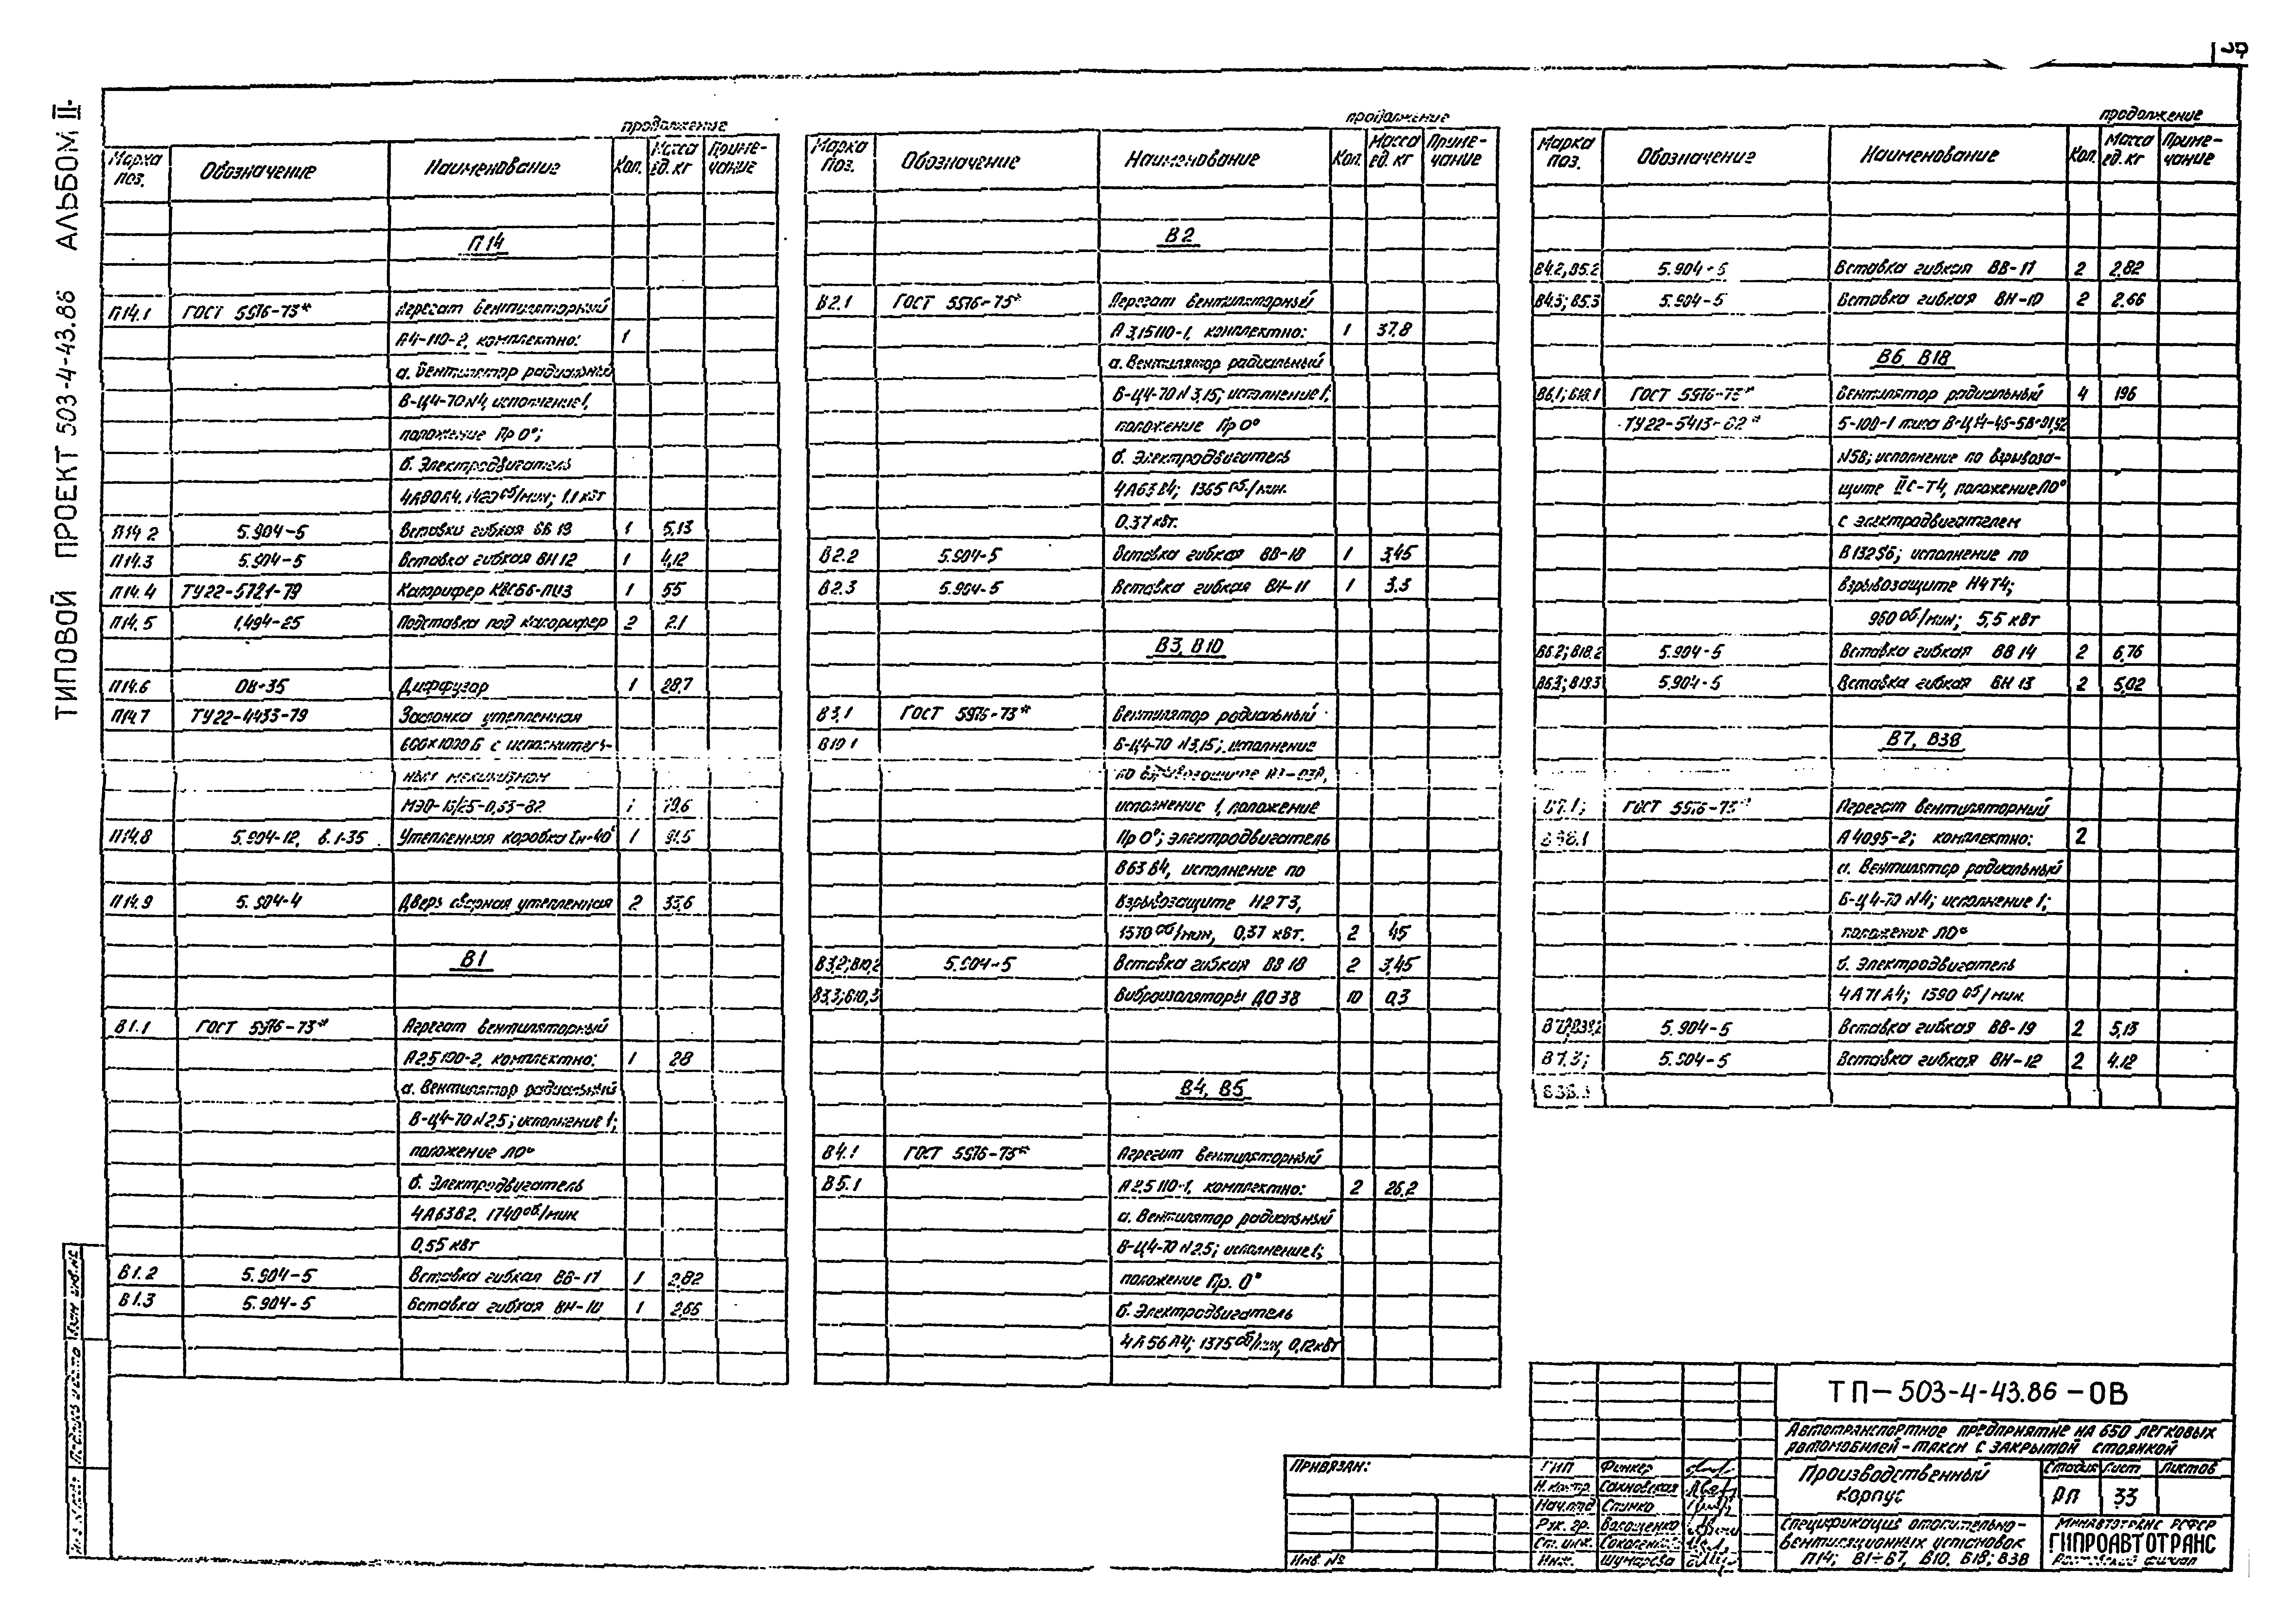 ТИПОВОЙ ПРОЕКТ 503-4-43.86 АЛЬБОМ II
продолжение
Марка поз. Обозначение Наименование Кол. Масса ед. кг Примечание
П14
П14.1 ГОСТ 5976-73* Агрегат вентиляторный
А4-110-2, комплектно: 1
а. Вентилятор радиальный
В-Ц4-70 N4, исполнение 1,
положение Пр 0°;
б. Электродвигатель
4А80А4, 1420 об/мин; 1.1 кВт
П14.2 5.904-5 Вставка гибкая ВВ 19 1 5,13
П14.3 5.904-5 Вставка гибкая ВН 12 1 4,12
П14.4 ТУ22-5721-79 Калорифер КВС6Б-ПУ3 1 55
П14.5 1.494-25 Подставка под калорифер 2 2.1
П14.6 ОВ-35 Диффузор 1 28,7
П14.7 ТУ22-4433-79 Заслонка утепленная
600×1000Б с исполнитель-
ным механизмом
МЭО-16/25-0,63-82 1 79.6
П14.8 5.904-12, в.1-35 Утепленная коробка tн-40° 1 91.5
П14.9 5.904-4 Дверь сборная утепленная 2 33,6
В1
В1.1 ГОСТ 5976-73* Агрегат вентиляторный
А2.5100-2, комплектно: 1 28
а. Вентилятор радиальный
В-Ц4-70 N2.5; исполнение 1;
положение Л0°
б. Электродвигатель
4А63В2, 1740 об/мин
0,55 кВт
В1.2 5.904-5 Вставка гибкая ВВ-17 1 2,82
В1.3 5.904-5 Вставка гибкая ВН-10 1 2,66
продолжение
Марка поз. Обозначение Наименование Кол. Масса ед. кг Примечание
В2
В2.1 ГОСТ 5976-73* Агрегат вентиляторный
А 3,15110-1, комплектно: 1 37.8
а. Вентилятор радиальный
В-Ц4-70 N 3,15; исполнение 1;
положение Пр 0°
б. Электродвигатель
4А63В4; 1365 об/мин.
0.37 кВт.
В2.2 5.904-5 Вставка гибкая ВВ-18 1 3,45
В2.3 5.904-5 Вставка гибкая ВН-11 1 3.3
В3, В10
В3.1 ГОСТ 5976-73* Вентилятор радиальный
В10.1 В-Ц4-70 N3.15; исполнение
по взрывозащите
исполнение 1, положение
Пр 0°; электродвигатель
В63В4, исполнение по
взрывозащите Н2Т3,
1370 об/мин, 0,37 кВт. 2 45
В3,2; В10,2 5.904-5 Вставка гибкая ВВ 18 2 3,45
В3.3; В10,3 Виброизоляторы ДО 38 10 0,3
В4, В5
В4.1 ГОСТ 5976-73* Агрегат вентиляторный
В5.1 А2.5110-1, комплектно: 2 26,2
а. Вентилятор радиальный
В-Ц4-70 N2.5; исполнение 1;
положение Пр. 0°
б. Электродвигатель
4А56А4; 1375 об/мин, 0,12 кВт
продолжение
Марка поз. Обозначение Наименование Кол. Масса ед. кг Примечание
В4.2, В5.2 5.904-5 Вставка гибкая ВВ-17 2 2,82
В4.3; В5.3 5.904-5 Вставка гибкая ВН-10 2 2.66
В6, В18
В6.1; В18.1 ГОСТ 5976-73* Вентилятор радиальный 4 196
ТУ22-5413-82* 5-100-1 типа
исполнение по взрывоза-
щите IIС-Т4, положение Л0°
с электродвигателем
В132S6; исполнение по
взрывозащите Н4Т4;
960 об/мин; 5,5 кВт
В6.2; В18.2 5.904-5 Вставка гибкая ВВ 14 2 6,76
В6.3; В18.3 5.904-5 Вставка гибкая ВН 13 2 5,02
В7, В38
В7.1; ГОСТ 5976-73* Агрегат вентиляторный
В38.1 А4095-2; комплектно: 2
а. Вентилятор радиальный
В-Ц4-70 N4; исполнение 1;
положение Л0°
б. Электродвигатель
4А71А4; 1390 об/мин.
В7.2; В38,2 5.904-5 Вставка гибкая ВВ-19 2 5,13
В7.3; 5.904-5 Вставка гибкая ВН-12 2 4.12
В38.3
ТП-503-4-43.86-ОВ
Автотранспортное предприятие на 650 легковых
автомобилей-такси с закрытой стоянкой
Привязан:
Инв. №
ГИП Финкер
Н. контр. Сахновская
Нач. отд. Слинко
Рук. гр. Волощенко
Ст. инж.
Инж. Шумарова
Производственный корпус
Стадия Лист Листов
РП 33
Спецификация отопительно-
вентиляционных установок
П14; В1÷В7, В10, В18; В38
Минавтотранс РСФСР
ГИПРОАВТОТРАНС
Ростовский филиал
Взам. инв. №
Подпись и дата